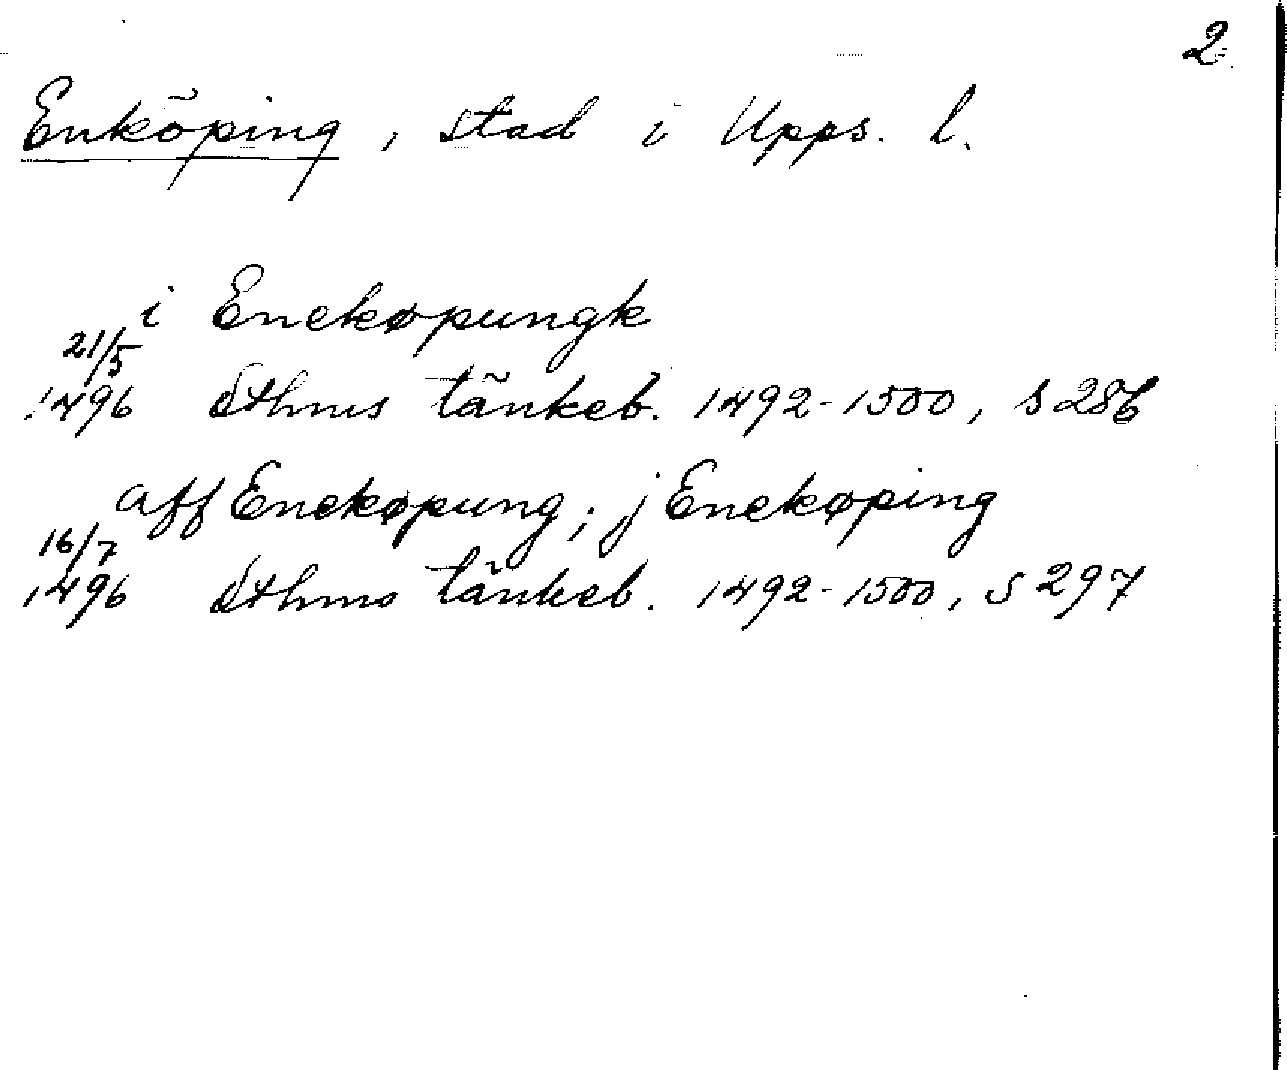 2
Enköping, stad i Upps. l.
i Enekøpungk
21/5
1496 Sthms tänkeb. 1492-1500, s 286
aff Enekøpung; j Enekøping
16/7
1496 Sthms tänkeb. 1492-1500, s 297